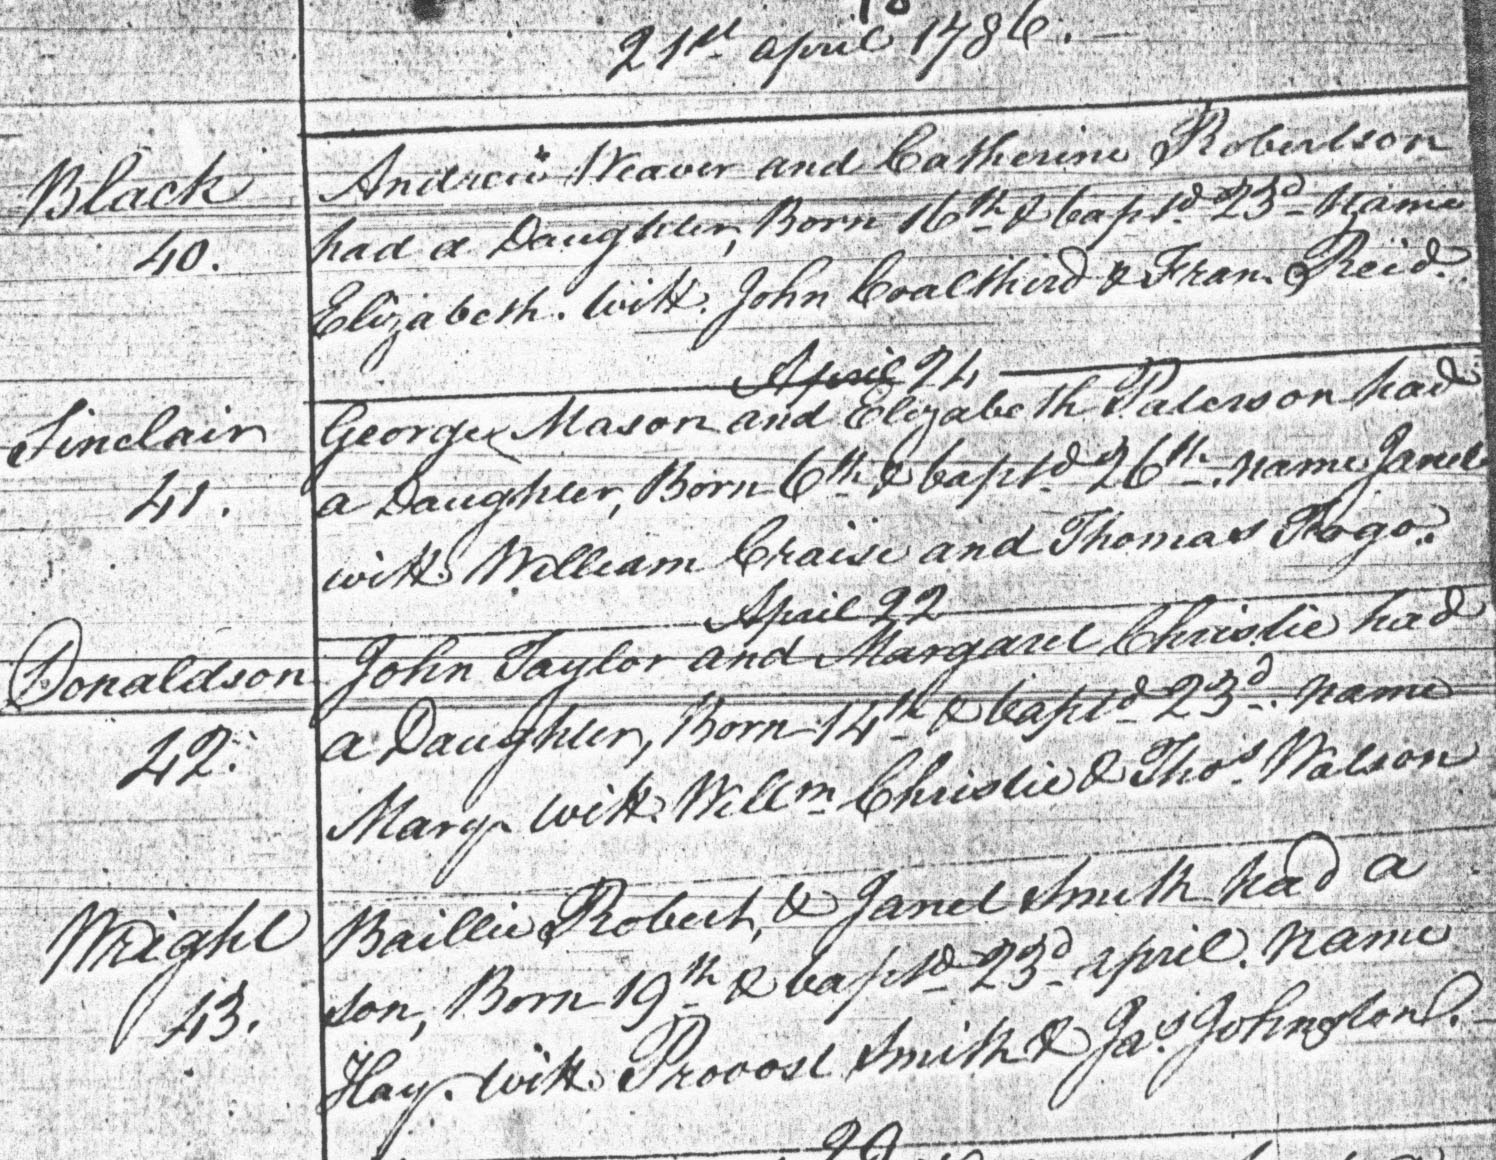 21st april 1786.
Black
40.
Andrew Weaver and Catherine Robertson
had a Daughter, Born 16th & baptd 23d name
Elizabeth. witt. John Coalthird & Fran. Reid.
April 24
Sinclair
41.
George Mason and Elizabeth Paterson had
a Daughter, Born 6th & baptd 26th. name Janet
witt. William Craise and Thomas Fogo.
April 22
Donaldson
42.
John Taylor and Margaret Christie had
a Daughter, Born 14th & baptd 23d. name
Mary. witt. Willm Christie & Thos. Watson
Wright
43.
Baillie Robert, & Janet Smith had a
son, Born 19th & baptd 23d april. name
Hay. witt. Provost Smith & Jas. Johnston.